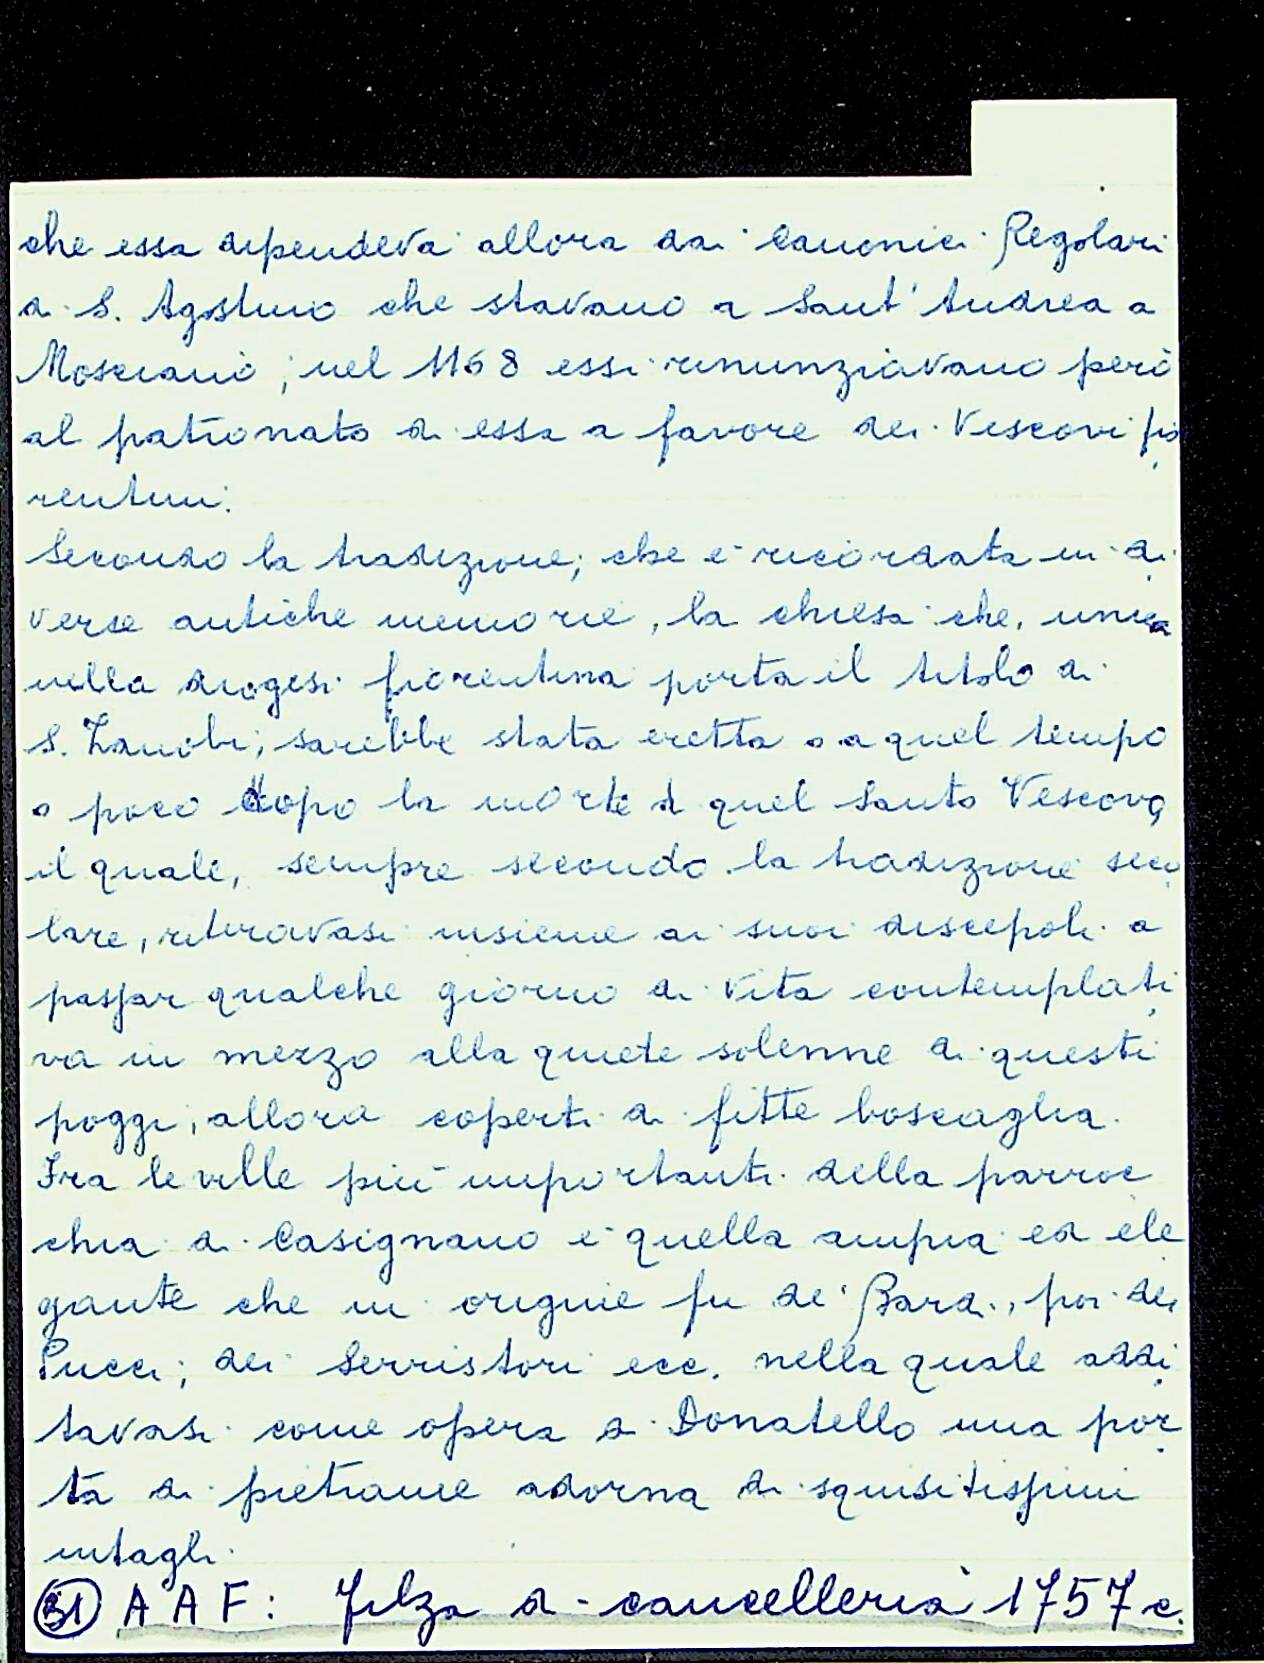 che essa dipendeva allora dai Canonici Regolari
di S. Agostino che stavano a Sant'Andrea a
Mosciano; nel 1168 essi rinunziavano però
al patronato di essa a favore dei Vescovi fio
rentini.
Secondo la tradizione, che è ricordata in di
verse antiche memorie, la chiesa che, unica
nella diogesi fiorentina porta il titolo di
S. Zanobi, sarebbe stata eretta o a quel tempo
o poco dopo la morte di quel Santo Vescovo,
il quale, sempre secondo la tradizione seco
lare, ritiravasi insieme ai suoi discepoli a
passar qualche giorno di vita contemplati
va in mezzo alla quiete solenne di questi
poggi, allora coperti di fitte boscaglia.
Fra le ville più importanti della parroc
chia di Casignano è quella ampia ed ele
gante che in origine fu de' Bardi, poi dei
Pucci, dei Serristori ecc. nella quale addi
tavasi come opera di Donatello una por
ta di pietrame adorna di squisitissimi
intagli.
(31) A A F: Filza di cancelleria 1757 c.